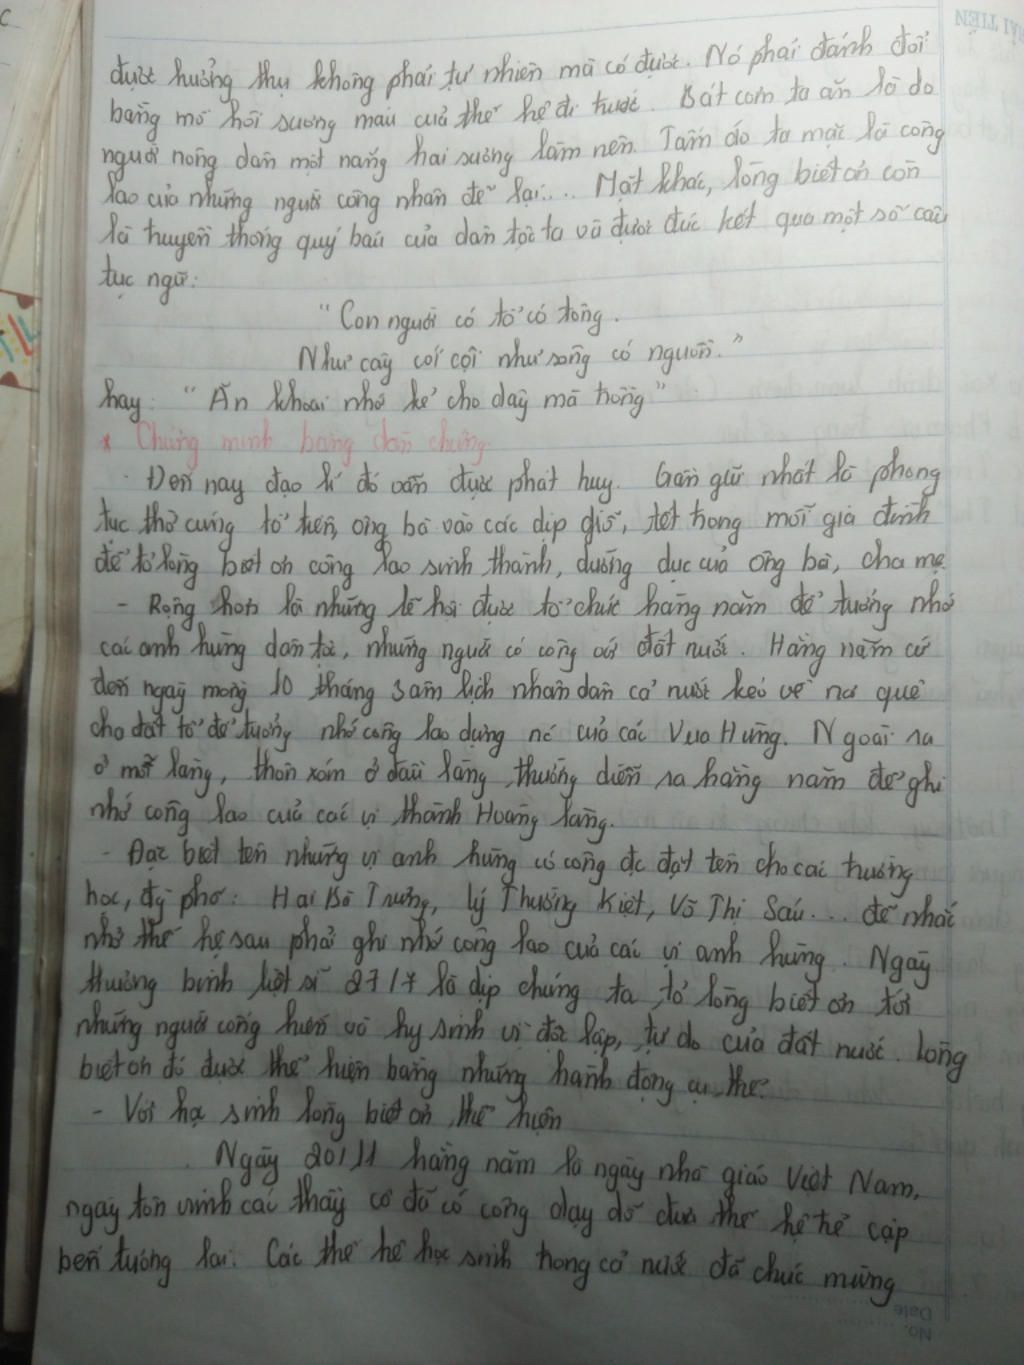 được hưởng thụ không phải tự nhiên mà có được. Nó phải đánh đổi
bằng mồ hôi sương máu của thế hệ đi trước. Bát cơm ta ăn là do
người nông dân một nắng hai sương làm nên. Tấm áo ta mặc là công
lao của những người công nhân để lại... Mặt khác, lòng biết ơn còn
là truyền thống quý báu của dân tộc ta và được đúc kết qua một số câu
tục ngữ:
"Con người có tổ có tông.
Như cây cối cội như sông có nguồn."
hay: "Ăn khoai nhớ kẻ cho dây mà trồng"
* Chứng minh bằng dẫn chứng
- Đến nay đạo lí đó vẫn được phát huy. Gần gũi nhất là phong
tục thờ cúng tổ tiên, ông bà vào các dịp giỗ, tết trong mỗi gia đình
để tỏ lòng biết ơn công lao sinh thành, dưỡng dục của ông bà, cha mẹ.
- Rộng hơn là những lễ hội được tổ chức hằng năm để tưởng nhớ
các anh hùng dân tộc, những người có công với đất nước. Hàng năm cứ
đến ngày mồng 10 tháng 3 âm lịch nhân dân cả nước kéo về nơi quê
cho đất tổ để tưởng nhớ công lao dựng nc của các Vua Hùng. Ngoài ra
ở mỗi làng, thôn xóm ở đầu làng thường diễn ra hàng năm để ghi
nhớ công lao của các vị thành Hoàng làng.
- Đặc biệt tên những vị anh hùng có công đc đặt tên cho các trường
học, đg phố: Hai Bà Trưng, Lý Thường Kiệt, Võ Thị Sáu... để nhắc
nhở thế hệ sau phải ghi nhớ công lao của các vị anh hùng. Ngày
thương binh liệt sĩ 27/7 là dịp chúng ta tỏ lòng biết ơn tới
những người cống hiến và hy sinh vì độc lập, tự do của đất nước. Lòng
biết ơn đó được thể hiện bằng những hành động cụ thể:
- Với học sinh lòng biết ơn thể hiện
Ngày 20/11 hằng năm là ngày nhà giáo Việt Nam,
ngày tôn vinh các thầy cô đã có công dạy dỗ đưa thế hệ trẻ cập
bến tương lai. Các thế hệ học sinh trong cả nước đã chúc mừng
No.
Date